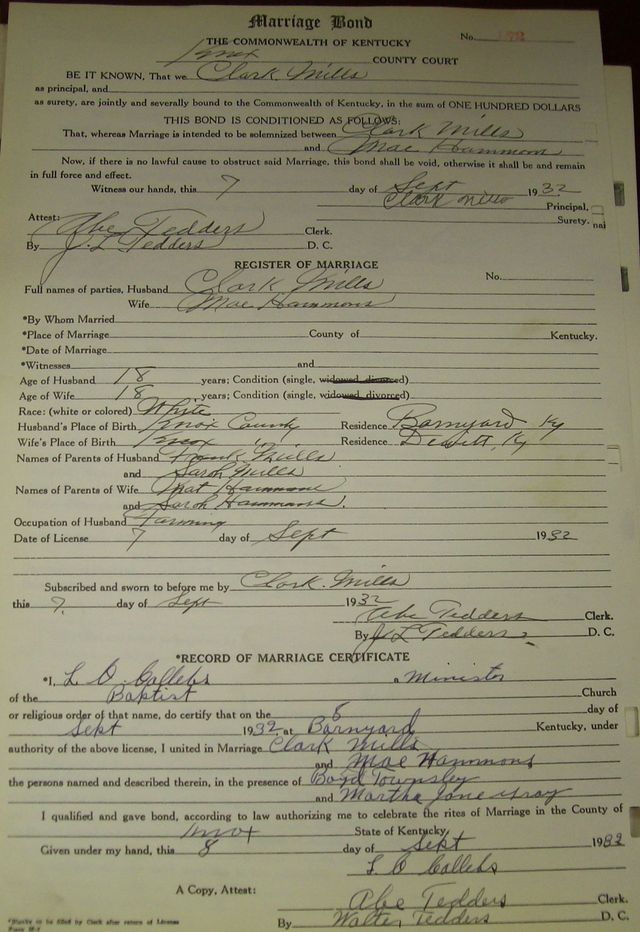 Marriage Bond
No.
THE COMMONWEALTH OF KENTUCKY
Knox COUNTY COURT
BE IT KNOWN, That we Clark Mills
as principal, and
as surety, are jointly and severally bound to the Commonwealth of Kentucky, in the sum of ONE HUNDRED DOLLARS
THIS BOND IS CONDITIONED AS FOLLOWS:
That, whereas Marriage is intended to be solemnized between Clark Mills
and Mae Hammons
Now, if there is no lawful cause to obstruct said Marriage, this bond shall be void, otherwise it shall be and remain
in full force and effect.
Witness our hands, this 7 day of Sept 1932
Clark Mills Principal,
Surety.
Attest:
Abe Tedders Clerk.
By J. L Tedders D. C.
REGISTER OF MARRIAGE
Full names of parties, Husband Clark Mills No.
Wife Mae Hammons
*By Whom Married
*Place of Marriage County of Kentucky.
*Date of Marriage
*Witnesses and
Age of Husband 18 years; Condition (single, widowed divorced)
Age of Wife 18 years; Condition (single, widowed, divorced)
Race: (white or colored) White
Husband's Place of Birth Knox County Residence Barnyard Ky
Wife's Place of Birth Knox " Residence Dewitt, Ky
Names of Parents of Husband Frank Mills
and Sarah Mills
Names of Parents of Wife Hammons
and Sarah Hammons.
Occupation of Husband Farming
Date of License 7 day of Sept 1932
Subscribed and sworn to before me by Clark Mills
this 7. day of Sept 1932
Abe Tedders Clerk.
By J. L Tedders D. C.
*RECORD OF MARRIAGE CERTIFICATE
*I, L O a Minister
of the Baptist Church
or religious order of that name, do certify that on the 8 day of
Sept 1932 at Barnyard Kentucky, under
authority of the above license, I united in Marriage Clark Mills
and Mae Hammons
the persons named and described therein, in the presence of Boyd Townsley
and Martha Jane Gray
I qualified and gave bond, according to law authorizing me to celebrate the rites of Marriage in the County of
Knox State of Kentucky.
Given under my hand, this 8 day of Sept 1932
L O
A Copy, Attest: Abe Tedders Clerk.
By Walter Tedders D. C.
*Blanks to be filled by Clerk after return of License